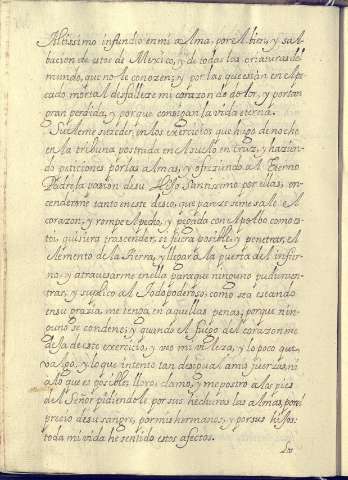 Altissimo infundio en mi a Alma, por el bien, y sal
bacion de estos de Mexico, y de todas las criaturas del
mundo, que no le conozen; y por las que estàn en el pe
cado mortal desfalleze mi corazon de dolor, y por tan
gran perdida, y porque consigan la vida eterna.
Sueleme suzeder, en los exercicios que hago de noche
en la tribuna postrada en el suelo en cruz, y hazien
do peticiones por las almas, y ofreziendo al Eterno
Padre la passion de su Hijo Santissimo por ellas, en
cenderme tanto en este deseo, que pareze se me sale el
corazon, y rompe el pecho, y pegada con el polbo como es
toi, quisiera trascender, si fuera posible, y penetrar el
elemento de la tierra, y llegar a la puerta del infier
no, y atravesarme en ella para que ninguno pudiera en
trar, y suplico al Todopoderoso; como sea estando
en su grazia, me tenga en aquellas penas, porque nin
guno se condene; y quando el fuego del corazon me
deja de este exercicio, y veo mi vileza, y lo poco que
valgo, y lo que intento tan desigual a mis fuerzas, ni
a lo que es posible, lloro, clamo, y me postro a los pies
del Señor pidiendole por sus hechuras las almas, por el
precio de su sangre, por mis hermanos, y por sus hijos:
toda mi vida he sentido estos afectos.